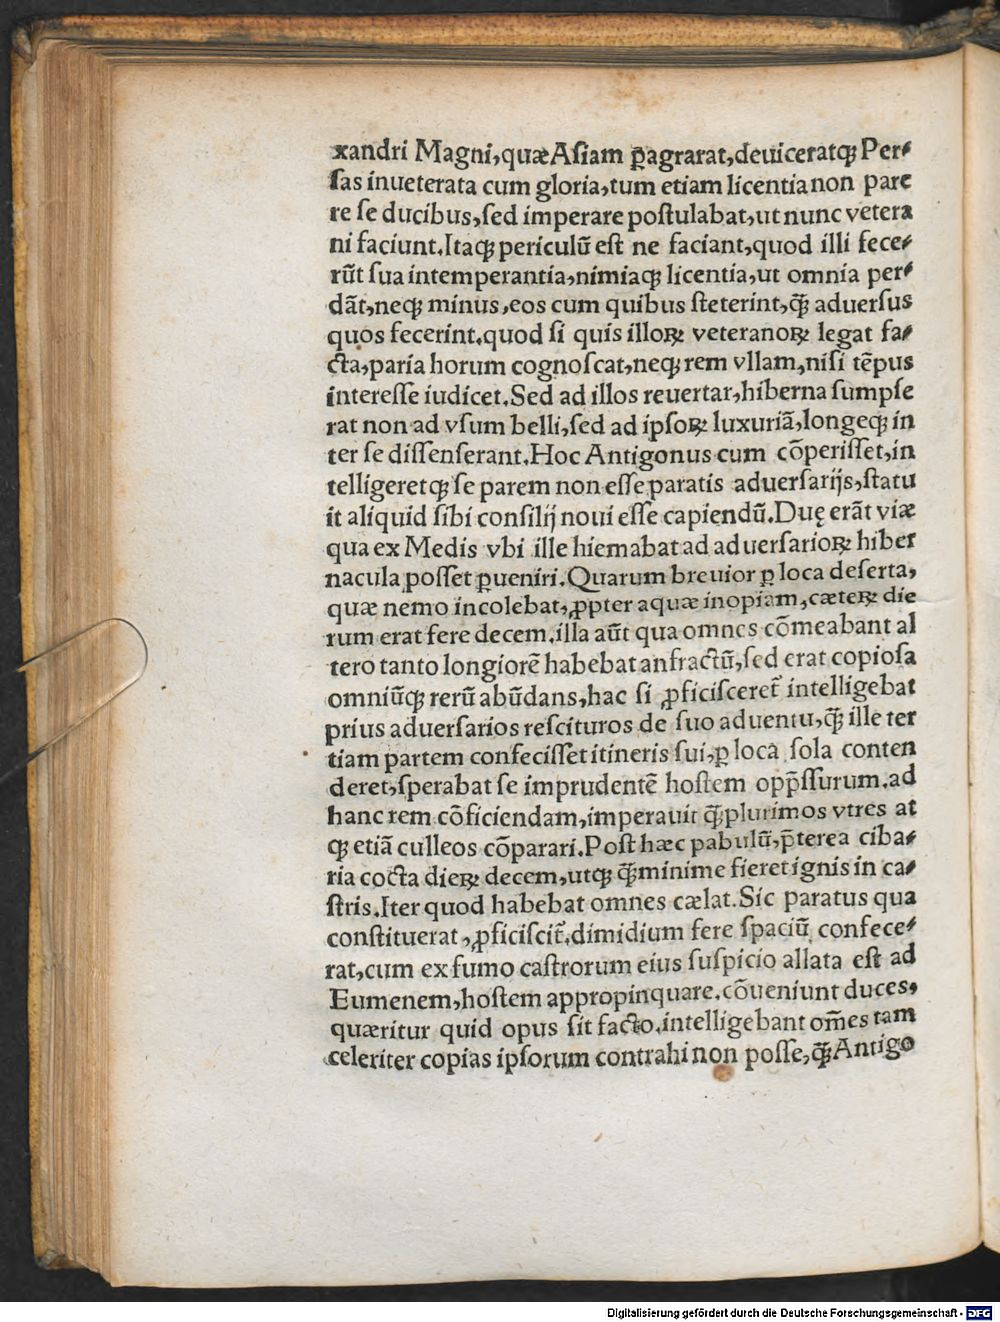 xandri Magni,quæ Aſiam ꝑagrarat,deuiceratqꝫ Per⸗
ſas inueterata cum gloria,tum etiam licentia non pare
re ſe ducibus,ſed imperare poſtulabat,ut nunc vetera
ni faciunt.Itaqꝫ periculū eſt ne faciant,quod illi fece⸗
rūt ſua intemperantia,nimiaqꝫ licentia,ut omnia per⸗
dāt,neqꝫ minus,eos cum quibus ſteterint,q̄ꝫ aduerſus
quos fecerint.quod ſi quis illoꝝ veteranoꝝ legat fa⸗
cta,paria horum cognoſcat,neqꝫ rem vllam,niſi tēpus
intereſſe iudicet.Sed ad illos reuertar,hiberna ſumpſe
rat non ad vſum belli,ſed ad ipſoꝝ luxuriā,longeqꝫ in
ter ſe diſſenſerant.Hoc Antigonus cum cōperiſſet,in
telligeretqꝫ ſe parem non eſſe paratis aduerſarijs,ſtatu
it aliquid ſibi conſilij noui eſſe capiendū.Duę erāt viæ
qua ex Medis vbi ille hiemabat ad aduerſarioꝝ hiber
nacula poſſet ꝑueniri.Quarum breuior ꝑ loca deſerta,
quæ nemo incolebat,ꝓpter aquæ inopiam,cæteꝝ die
rum erat fere decem.illa aūt qua omnes cōmeabant al
tero tanto longiorē habebat anfractū,ſed erat copioſa
omniūqꝫ rerū abūdans,hac ſi ꝓficiſceret̄ intelligebat
prius aduerſarios reſcituros de ſuo aduentu,q̄ꝫ ille ter
tiam partem confeciſſet itineris ſui,ꝑ loca ſola conten
deret,ſperabat ſe imprudentē hoſtem opp̄ſſurum.ad
hanc rem cōficiendam,imperauit q̄ꝫplurimos vtres at
qꝫ etiā culleos cōparari.Poſt hæc pabulū,p̄terea ciba⸗
ria cocta dieꝝ decem,utqꝫ q̄ꝫminime fieret ignis in ca⸗
ſtris.Iter quod habebat omnes cælat.Sic paratus qua
conſtituerat,ꝓficiſcit̄.dimidium fere ſpaciū confece⸗
rat,cum ex fumo caſtrorum eius ſuſpicio allata eſt ad
Eumenem,hoſtem appropinquare.cōueniunt duces,
quæritur quid opus ſit facto.intelligebant om̄es tam
celeriter copias ipſorum contrahi non poſſe,q̄ꝫ Antigo
Digitalisierung gefördert durch die Deutsche Forschungsgemeinschaft - DFG